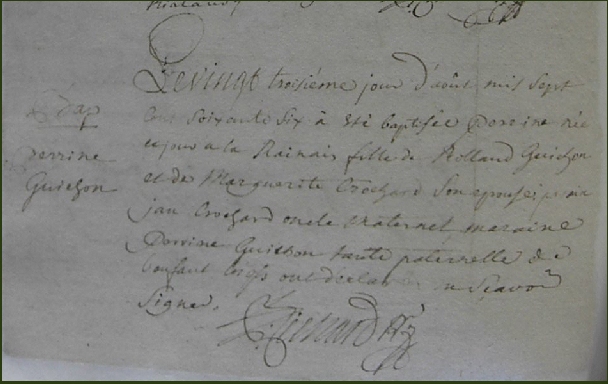 Le vingt troisiéme jour d'août mil sept
cent soixante six à été baptisée Perrine née
ce jour a la Rainais fille de Rolland Guichon
et de Marguerite Crochard son epouse; parain
jan Crochard oncle maternel, maraine
Perrine Guichon tante paternelle de
l'enfant lesquels ont déclaré ne sçavoir
signer.
Bap
Perrine
Guichon